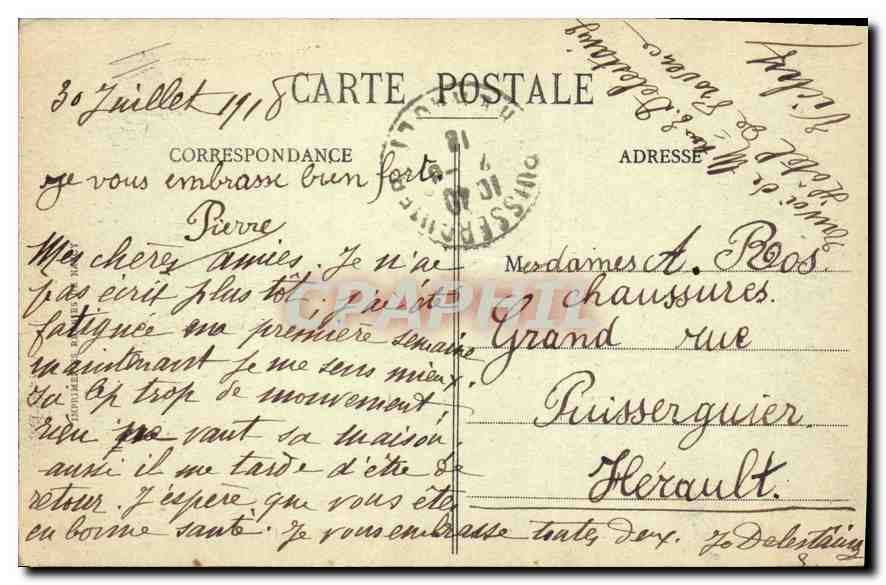 30 Juillet 1918
CARTE POSTALE
CORRESPONDANCE
ADRESSE
Je vous embrasse bien fort.
Pierre
Mes chères amies. Je n'ai
pas écrit plus tôt j'ai été
fatiguée ma première semaine
maintenant je me sens mieux.
Ici trop de mouvement,
rien ne vaut sa maison,
aussi il me tarde d'être de
retour. J'espère que vous êtes
en bonne santé. Je vous embrasse toutes deux. Delestaing
Mesdames A. Ros.
chaussures.
Grand rue
Puisserguier.
Hérault.
Envoi de Mme E. Delestaing
Hôtel de Provence
Vichy
PUISSERGUIER
HERAULT
10 40
18
CPAPHIL
IMPRIMERIES NANCY